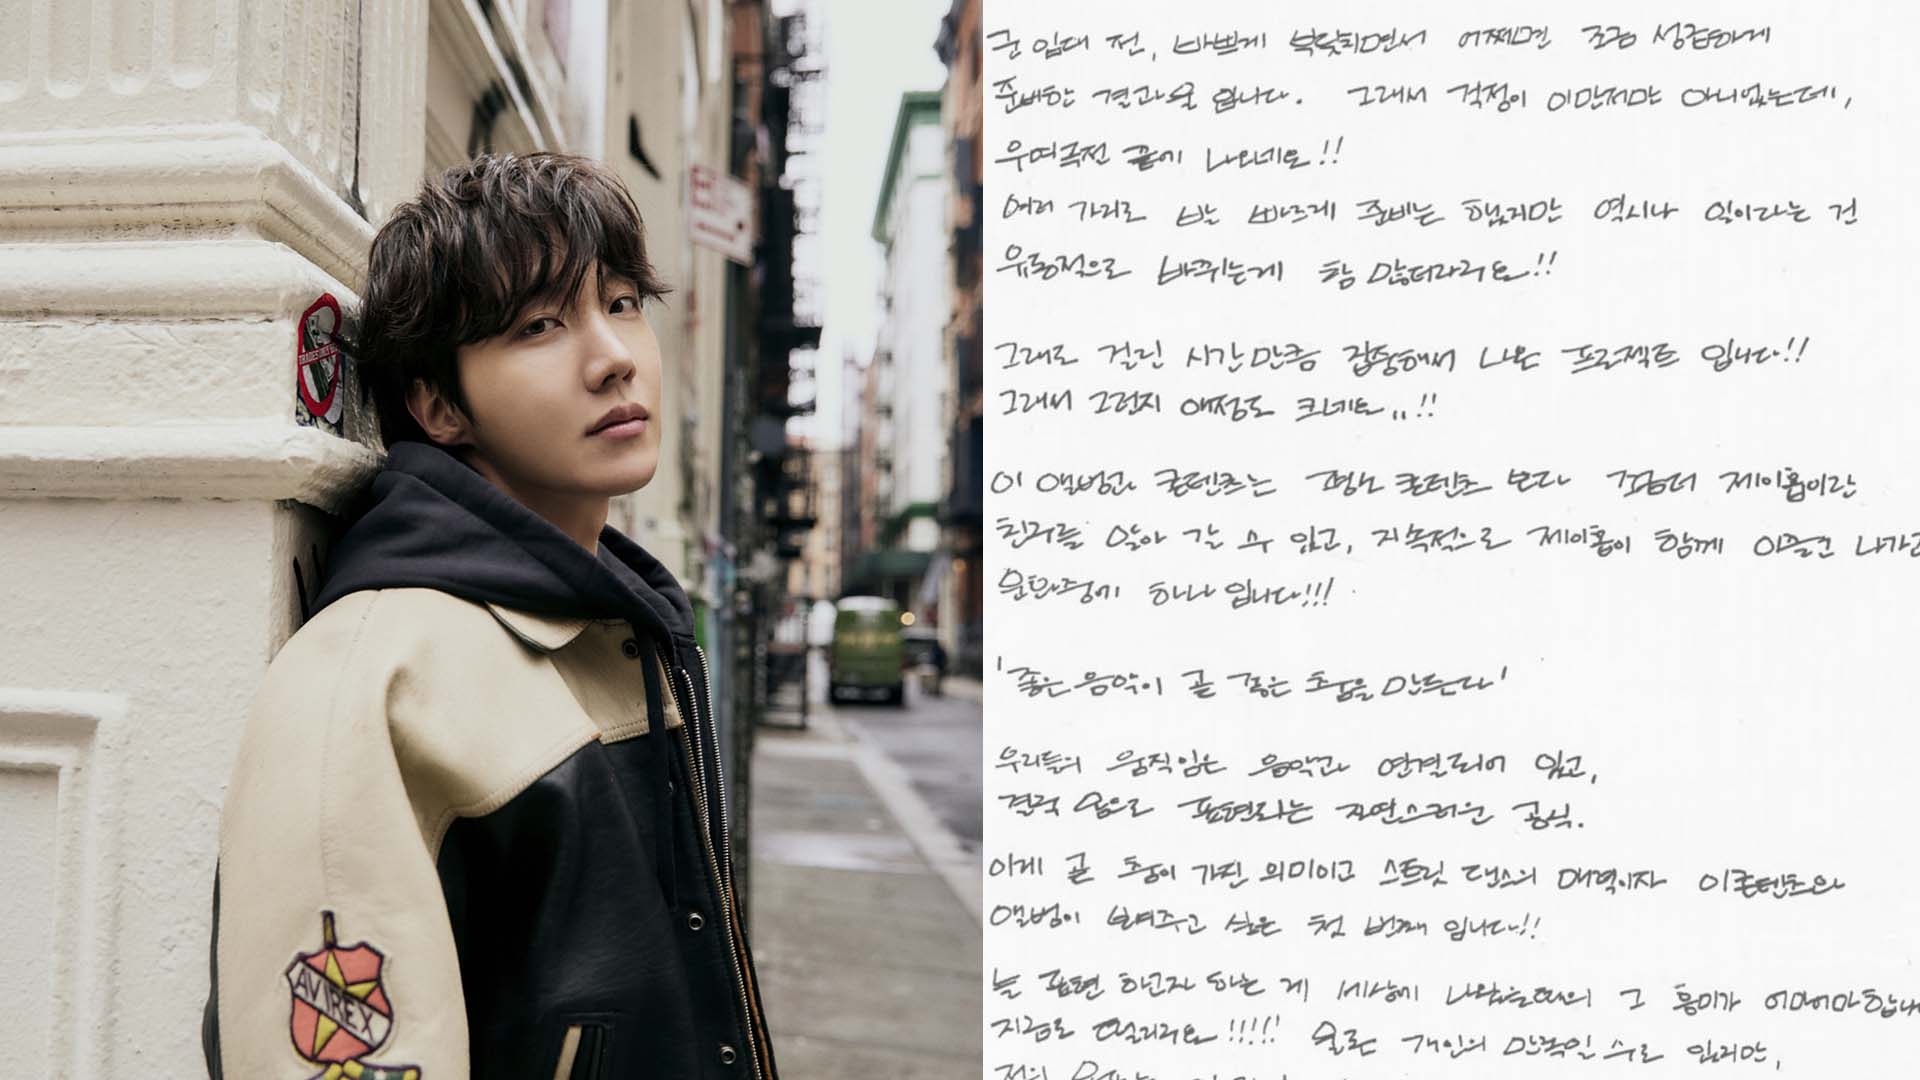 AVIREX
군 입대 전, 바쁘게 부딪히면서 어쩌면 조금 성급하게
준비한 결과물 입니다. 그래서 걱정이 이만저만 아니었는데,
우여곡절 끝에 나오네요!!
여러 가지로 발 빠르게 준비는 했지만 역시나 일이라는 건
유동적으로 바뀌는게 참 많더라구요!!
그래도 걸린 시간만큼 집중해서 나온 프로젝트 입니다!!
그래서 그런지 애정도 크네요..!!
이 앨범과 콘텐츠는 그 어느 콘텐츠 보다 좀 더 제이홉이란
친구를 알아 갈 수 있고, 지속적으로 제이홉이 함께 이끌고 나가고
문화중에 하나 입니다!!!
'좋은 음악이 곧 좋은 춤을 만든다'
우리들의 움직임은 음악과 연결되어 있고,
결국 춤으로 표현되는 자연스러운 공식.
이게 곧 춤이 가진 의미이고 스트릿 댄스의 매력이자 이 콘텐츠와
앨범이 보여주고 싶은 첫 번째 입니다!!
늘 표현 하고자 하는 게 세상에 나왔을때의 그 흥미가 어마어마합니다
지금도 떨리구요!!!!! 물론 개인의 만족일 수도 있지만,